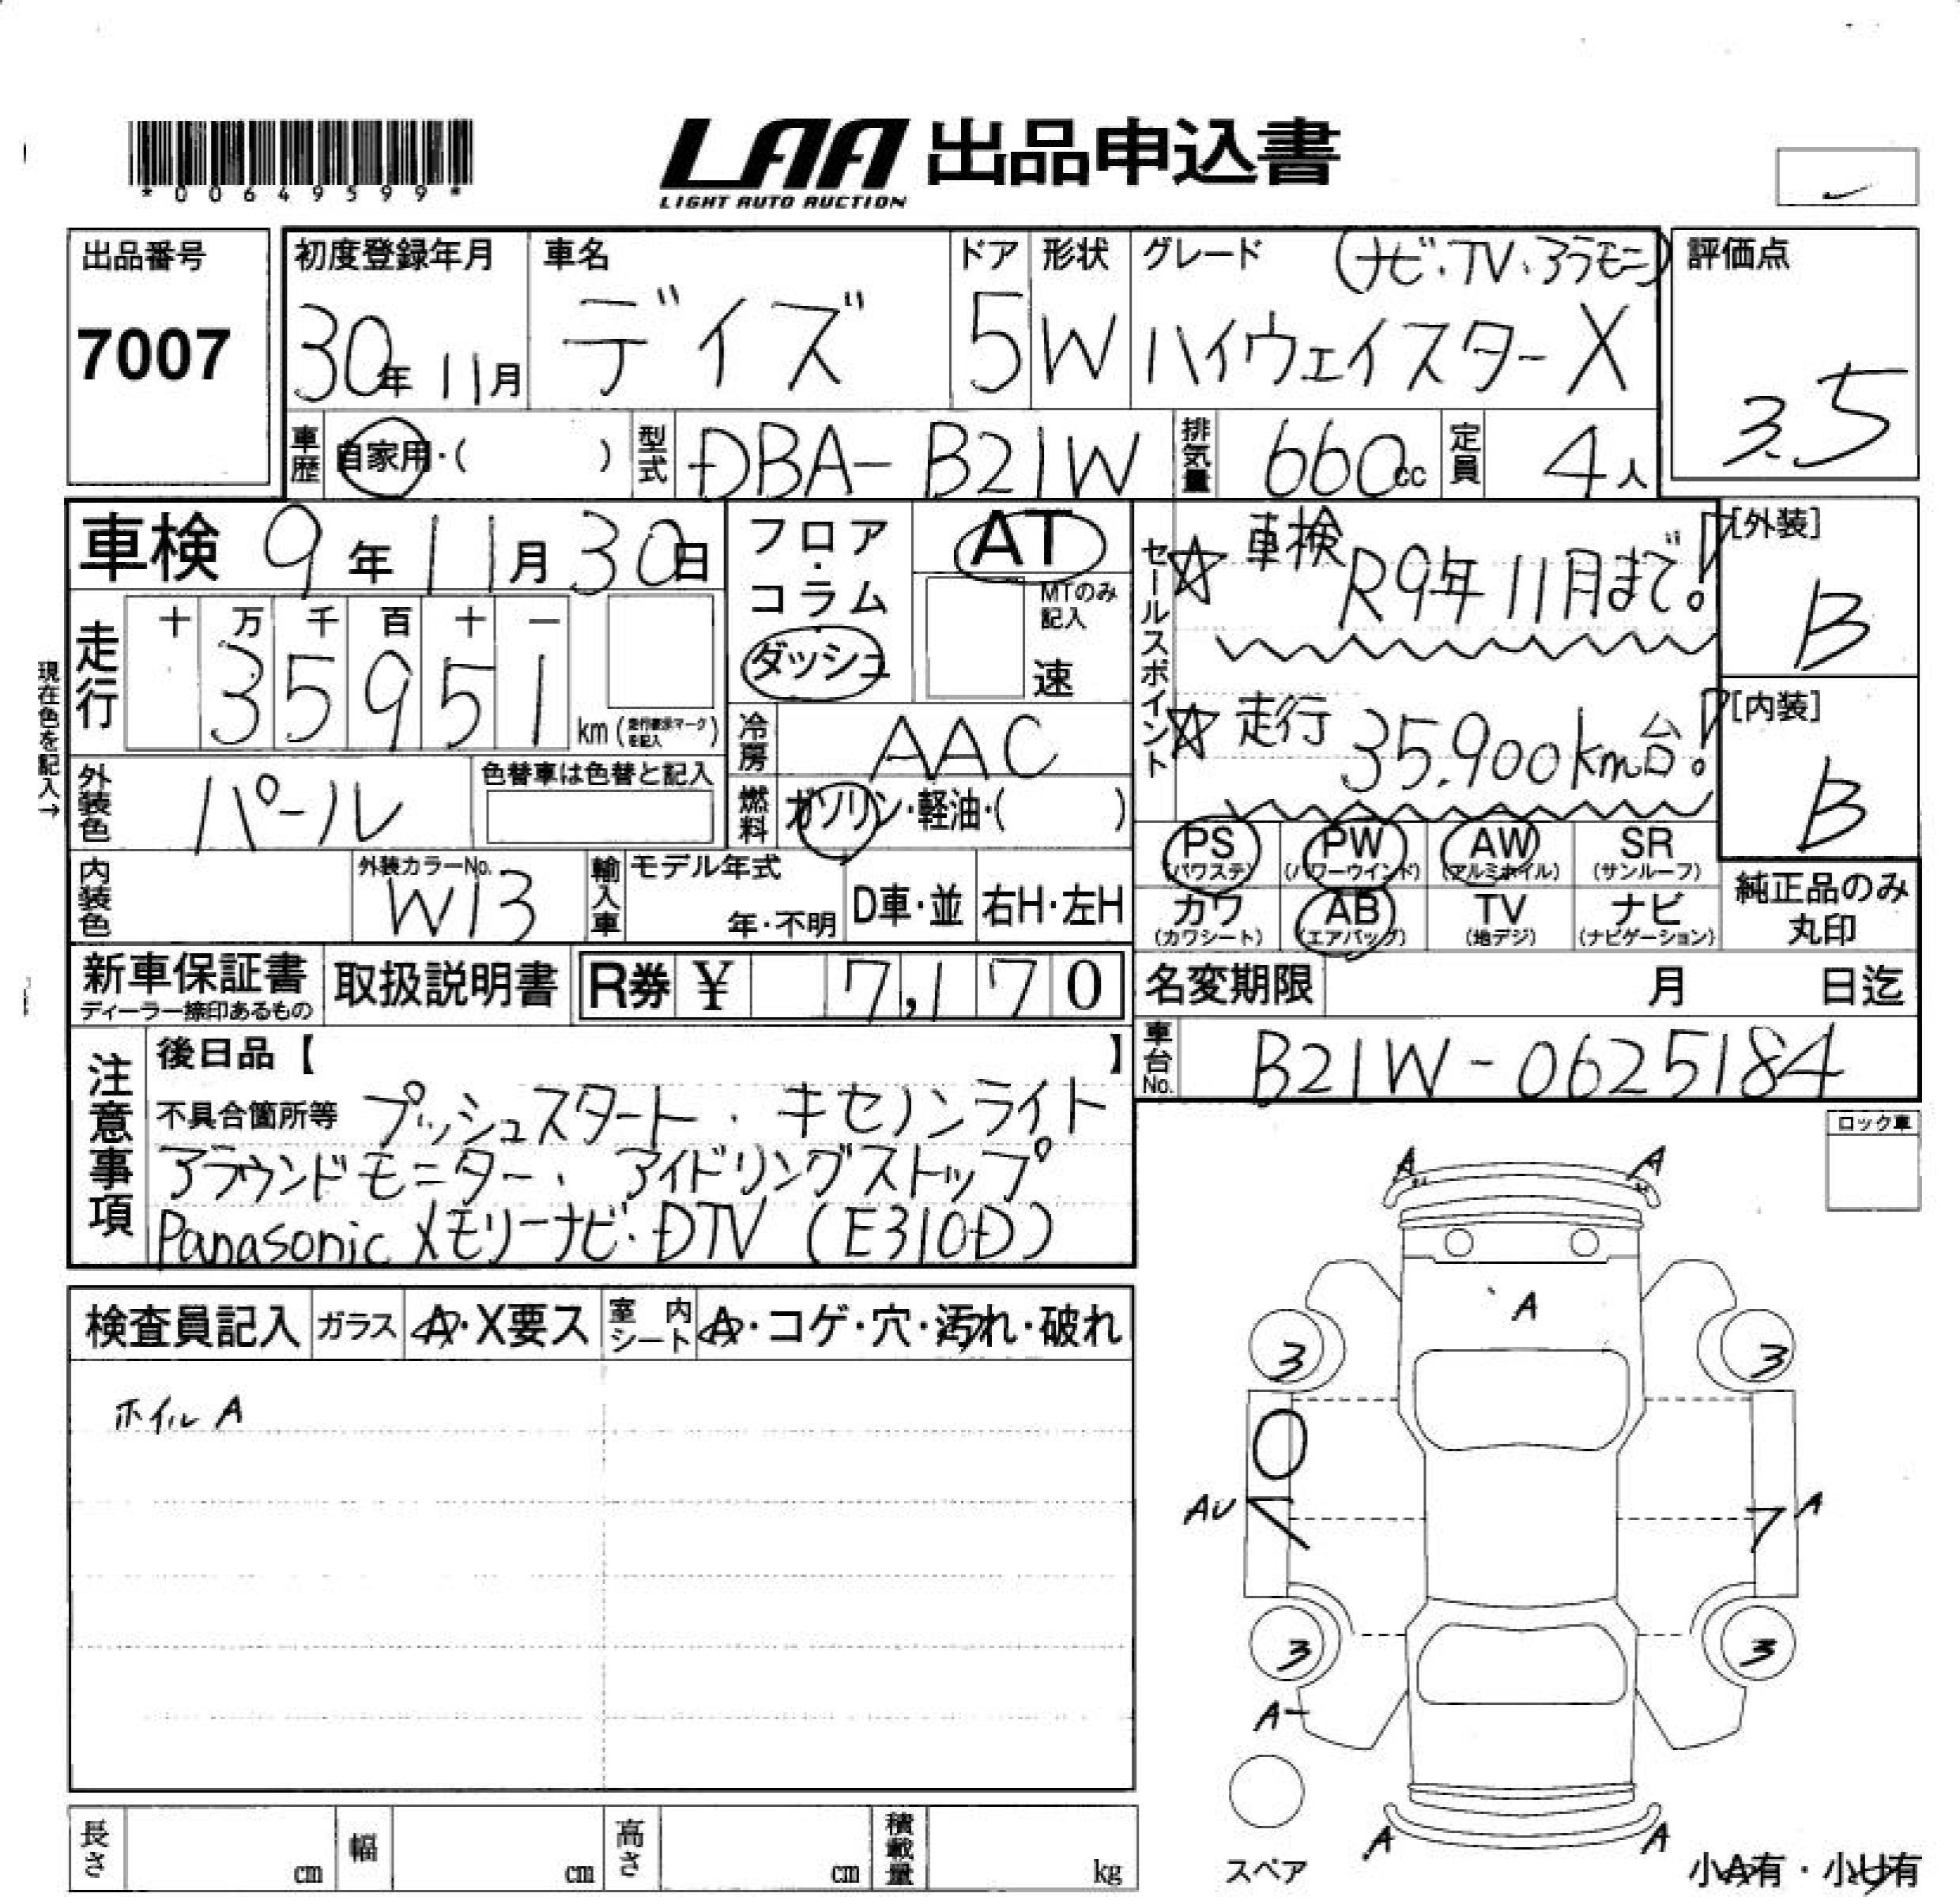 *00649599*
LAA 出品申込書
LIGHT AUTO AUCTION
出品番号
7007
初度登録年月
30年 11月
車名
デイズ
ドア
5
形状
W
グレード (ナビ・TV・アラモニ)
ハイウェイスターX
評価点
3.5
車歴 自家用・( )
型式 DBA-B21W
排気量 660cc
定員 4人
車検 9年11月30日
フロア・コラム
ダッシュ
AT
MTのみ記入
速
セールスポイント
☆車検 R9年11月まで!
☆走行 35,900km台!
[外装]
B
[内装]
B
現在色を記入→
走行 十 万 千 百 十 一
35951
km (走行表示マークを記入)
冷房 AAC
燃料 ガソリン・軽油・( )
外装色 パール
色替車は色替と記入
内装色
外装カラーNo.
W13
輸入車 モデル年式
年・不明
D車・並 右H・左H
PS (パワステ)
PW (パワーウインド)
AW (アルミホイル)
SR (サンルーフ)
カワ (カワシート)
AB (エアバッグ)
TV (地デジ)
ナビ (ナビゲーション)
純正品のみ
丸印
新車保証書
ディーラー捺印あるもの
取扱説明書
R券 ¥ 7,170
名変期限 月 日迄
車台No. B21W-0625184
注意事項
後日品【 】
不具合箇所等 プッシュスタート・キセノンライト
アラウンドモニター・アイドリングストップ
Panasonicメモリーナビ・DTV (E310D)
ロック車
検査員記入 ガラス A・X要ス 室内シート A・コゲ・穴・汚れ・破れ
ホイルA
A A
A
3 3
0
AU 7 A
7
3 3
A-
A A
スペア
小A有・小U有
長さ cm 幅 cm 高さ cm 積載量 kg